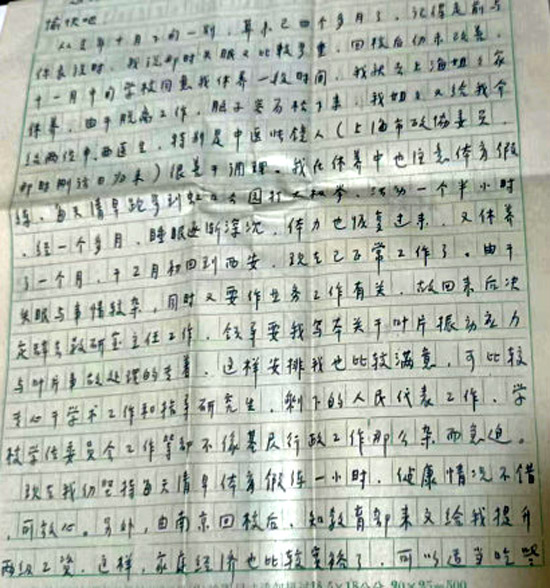 愉快吧
从去年十月 的一别，算来已四个多月了。记得是前与
你表说时，我说那时失眠又比较多重，回校后仍未改善。
十一月中旬学校同意我休养一段时间，我就去上海姐 家
休养，由于脱离工作，脑子容易松下来，我姐 又给我介
绍两位中西医生，特别是中医 健人（上海市政协委员，
那时刚访日归来）很善于调理。我在休养中也注意体育锻
炼，每天清早跑步到 公园打太极拳，活动一个半小时
，经一个多月，睡眠逐渐深沉，体力也恢复过来，又休养
了一个月，于2月初回到西安，现在已正常工作了。由于
失眠与事情较杂，同时又要作业务工作有关，故回来后决
定辞去教研室主任工作，领导要我写本关于叶片振动应力
与叶片事故处理的专著，这样安排我也比较满意，可比较
专心于学术工作和指导研究生，剩下的人民代表工作，学
校学位委员会工作等都不像基层行政工作那么杂而急迫。
现在我仍坚持每天清早体育锻练一小时，健康情况不错
，可放心。另外，由南京回校后，知教育部来文给我提升
两级工资，这样，家庭经济也比较宽裕了，可以适当吃些